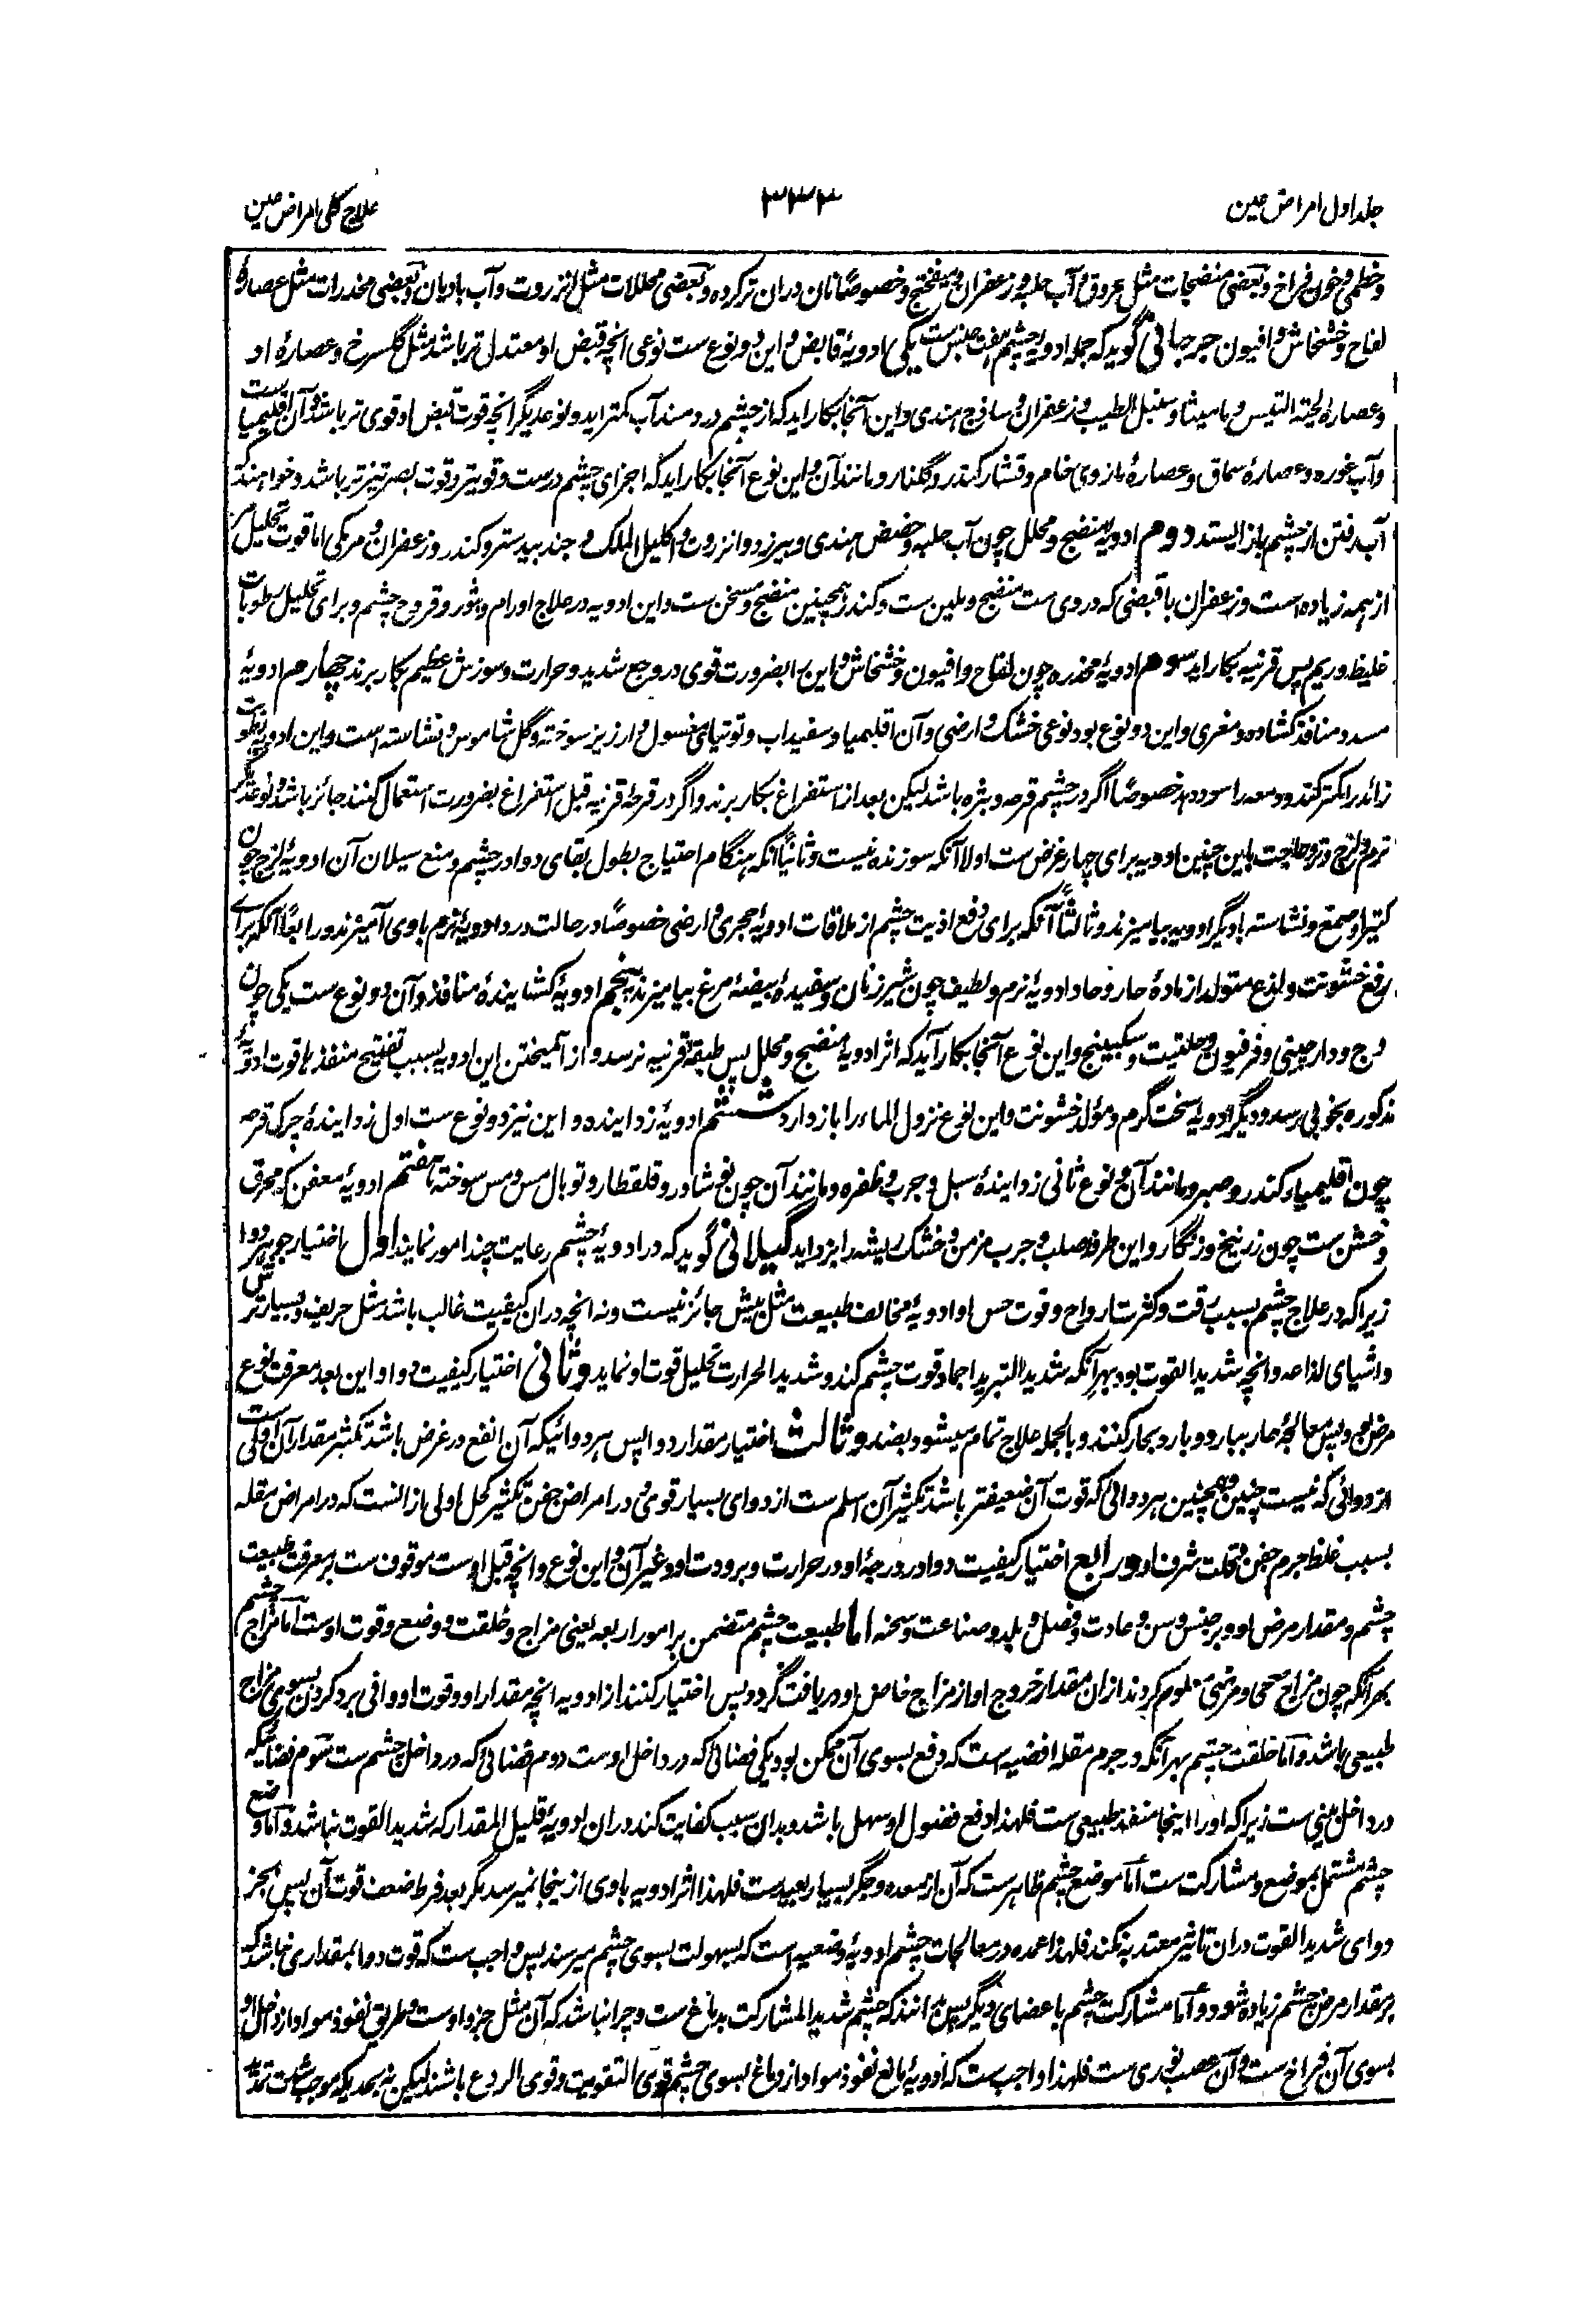 جلد اول امراض عین
۳۳۲
علاج کلی امراض عین
و خطمی و خون فراخ و بعضی منضجات مثل عروق و آب حلبه و زعفران و میفختج و خصوصًا نان دران تر کرده و بعضی محللات مثل انزروت و آب بادیان و بعضی مخدرات مثل عصارهٔ
لفاح و خشخاش و افیون جرجانی گوید که جمله ادویهٔ چشم هفت جنس ست یکی ادویهٔ قابض و این دو نوع ست نوعی انچه قبض او معتدل تر باشد مثل گلسرخ و عصارهٔ او
و عصارهٔ لحیة التیس و مامیثا و سنبل الطیب و زعفران و ساذج هندی و این آنجا بکار اید که از چشم دردمند آب کمتر اید و نوع دیگر انچه قوت قبض او قوی تر باشد و آن اقلیمیا ست
و آب غوره و عصارهٔ سماق و عصارهٔ مازوی خام و قشار کندر و گلنار و مانند آن و این نوع آنجا بکار اید که اجزای چشم درست و قویتر و قوت بصر تیزتر باشد و خواهند که
آب رفتن از چشم باز ایستد دوم ادویهٔ منضج و محلل چون آب حلبه و حضض هندی و بیرزد و انزروت و اکلیل الملک و جندبیدستر و کندر و زعفران و مر مکی اما قوت تحلیل مر
از همه زیاده است و زعفران با قبضی که در وی ست منضج و ملین ست و کندر همچنین منضج و مسخن ست و این ادویه در علاج اورام و بثور و قروح چشم و برای تحلیل رطوبات
غلیظ و ریم پس قرنیه بکار اید سوم ادویهٔ مخدره چون لفاح و افیون و خشخاش و این را بضرورت قوی در وجع شدید و حرارت و سوزش عظیم بکار برند چهارم ادویهٔ
مسدد منافذ کشاده و مغری و این دو نوع بود نوعی خشک و ارضی و آن اقلیمیا و سفیداب و توتیای مغسول و ارزیز سوخته و گل شاموس و نشاسته است و این ادویه رطوبت
زائد را کمتر کند و دمعه را سود دهد خصوصًا اگر در چشم قرحه و بثره باشد لیکن بعد از استفراغ بکار برند و اگر در قرحهٔ قرنیه قبل استفراغ بضرورت استعمال کنند جائز باشد و نوع دیگر
نرم و لزج و تر و حاجت باین چنین ادویه برای چهار غرض ست اولا آنکه سوزنده نیست و ثانیًا انکه هنگام احتیاج بطول بقای دوا در چشم و منع سیلان آن ادویهٔ لزج چون
کتیرا و صمغ و نشاسته با دیگر ادویه بیامیزند و ثالثًا آنکه برای دفع اذیت چشم از ملاقات ادویهٔ حجری و ارضی خصوصًا در حالت درد ادویهٔ نرم با وی آمیزند و رابعًا آنکه برای
رفع خشونت و لذع متولد از مادهٔ حار و حاد ادویهٔ نرم و لطیف چون شیر زنان و سفیدهٔ بیضهٔ مرغ بیامیزند پنجم ادویهٔ کشایندهٔ منافذ و آن دو نوع ست یکی چون
وج و دارچینی و فرفیون و حلتیت و سکبینج و این نوع آنجا بکار آید که اثر ادویهٔ منضج و محلل پس طبقهٔ قرنیه نرسد و از آمیختن این ادویه بسبب تفتیح منفذ ها قوت ادویهٔ
مذکوره بخوبی رسد و دیگر ادویهٔ سخت گرم و مولد خشونت و این نوع نزول الماء را باز دارد ششم ادویهٔ زداینده و این نیز دو نوع ست اول زدایندهٔ چرک قرحه
چون اقلیمیا و کندر و صبر و مانند آن و نوع ثانی زدایندهٔ سبل و جرب و ظفره و مانند آن چون نوشادر و قلقطار و توبال مس و مس سوخته هفتم ادویهٔ معفن که محرق
و خشن ست چون زرنیخ و زنگار و این ظفرهٔ صلب و جرب مزمن و خشک ریشه را بزداید گیلانی گوید که در ادویهٔ چشم رعایت چند امور نمایند اول اختیار جوهر دوا
زیرا که در علاج چشم بسبب رقت و کثرت ارواح و قوت حس او ادویهٔ مخالف طبیعت مثل بیش جائز نیست و نه انچه دران کیفیت غالب باشد مثل حریف و بسیار ترش
و اشیای لذاعه و انچه شدید القوت بود بهر آنکه شدید التبرید اجماد قوت چشم کند و شدید الحرارت تحلیل قوت او نماید و ثانی اختیار کیفیت دوا و این بعد معرفت نوع
مرض بود پس معالجهٔ حار ببارد و بارد بحار کنند و بالجمله علاج تمام میشود بضد و ثالث اختیار مقدار دوا پس هر دوائیکه آن انفع در غرض باشد تکثیر مقدار آن اولی ست
از دوائی که نیست چنین و همچنین هر دوائی که قوت آن ضعیفتر باشد تکثیر آن اسلم ست از دوای بسیار قوی و در امراض جفن تکثیر کحل اولی باز انست که در امراض مقله
بسبب غلظ جرم جفن و قلت شرف او و رابع اختیار کیفیت دوا در درجهٔ او در حرارت و برودت او و غیر آن و این نوع و انچه قبل اوست موقوف ست بر معرفت طبیعت
چشم و مقدار مرض او و بر جنس و سن و عادت و فصل و بلد و صناعت و سحنه اما طبیعت چشم متضمن بر امور اربعه یعنی مزاج و خلقت و وضع و قوت اوست اما مزاج چشم
بهر آنکه چون مزاج صحی و مرضی معلوم کردند ازان مقدار خروج او از مزاج خاص او دریافت گردد پس اختیار کنند از ادویه انچه مقدار او و قوت او وافی برد کردن بسوی مزاج
طبیعی باشد و اما خلقت چشم بهر آنکه در جرم مقله افضیه ست که دفع بسوی آن ممکن بود یکی فضائی که در داخل اوست دوم فضائی که در داخل چشم ست سوم فضائیکه
در داخل بینی ست زیرا که او را اینجا منفذ طبیعی ست فلهذا دفع فضول او سهل باشد و بدان سبب کفایت کند دران ادویهٔ قلیل المقدار که شدید القوت نباشد و اما وضع
چشم مشتمل بموضع و مشارکت ست اما موضع چشم ظاهر ست که آن از معده و جگر بسیار بعید ست فلهذا اثر ادویه با وی از ینجا نمیرسد مگر بعد فرط ضعف قوت آن پس بجز
دوای شدید القوت دران تاثیر معتد به نکند فلهذا عمده در معالجات چشم ادویهٔ وضعیه است که بسهولت بسوی چشم میرسند پس واجب ست که قوت دوا بمقداری نباشد که
بر مقدار مرض چشم زیاده شود و اما مشارکت چشم با عضای دیگر پس بدانند که چشم شدید المشارکت بدماغ ست و چرا نباشد که آن مثل جزو اوست و طریق نفوذ مواد از داخل او
بسوی آن فراخ ست و آن عصب نوری ست فلهذا واجب ست که ادویهٔ مانع نفوذ مواد از دماغ بسوی چشم قوی التقویت و قوی الردع باشد لیکن نه بحدیکه موجب شدت تمدد